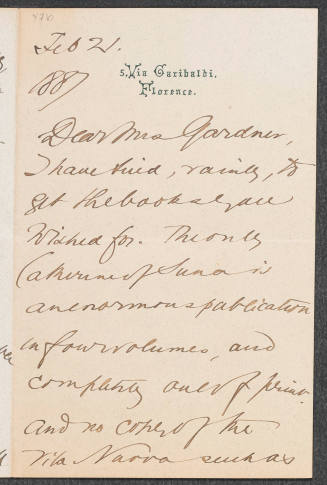 Feb 21.
1887
5. Via Garibaldi,
Florence.
Dear Mrs Gardner,
I have tried, vainly, to
get the books you
wished for. The only
Catherine of Siena is
an enormous publication
in four volumes, and
completely out of print.
and no copy of the
Vita Nuova such as